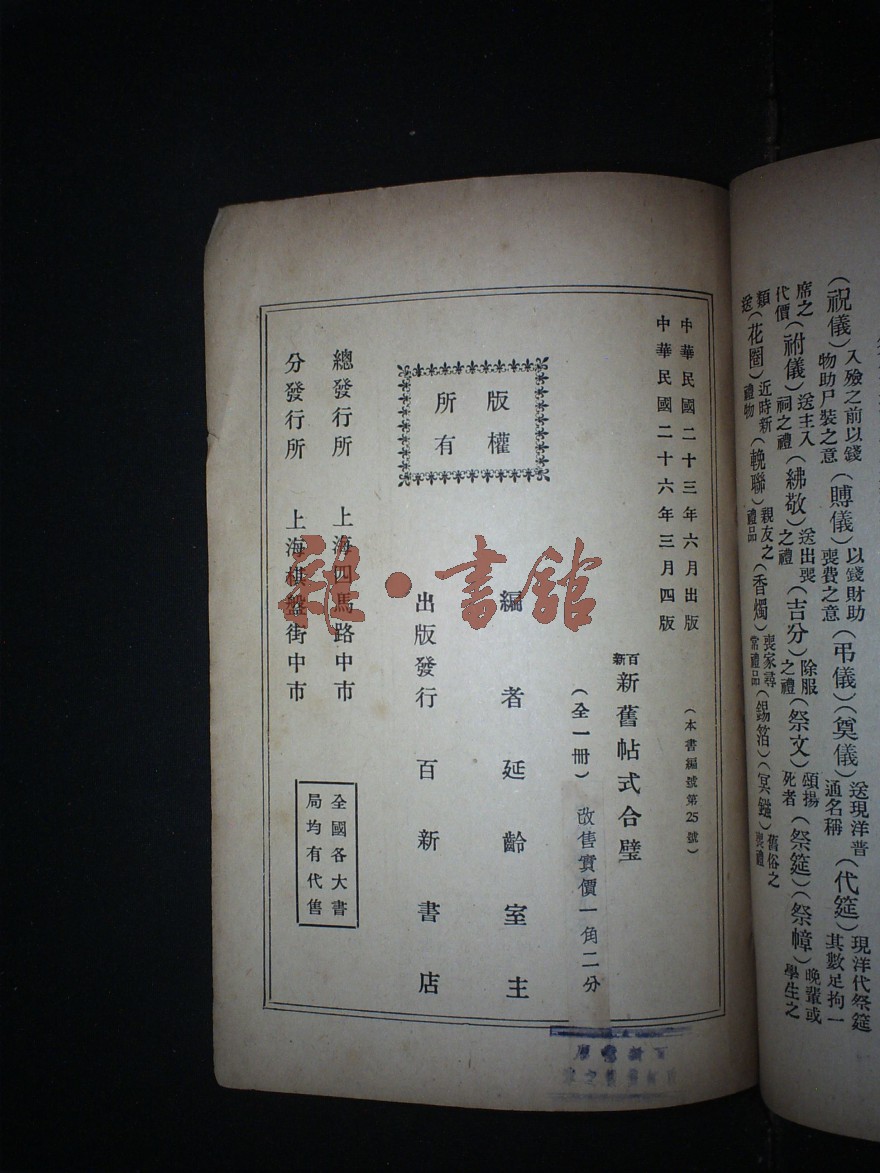 (祝儀)入殮之前以錢物助尸裝之意(賻儀)以錢財助喪費之意(弔儀)(奠儀)送現洋普通名稱(代筵)現洋代祭筵其數足拘一
席之代價(祔儀)送主入祠之禮(紼敬)送出喪之禮(吉分)除服之禮(祭文)頌揚死者(祭筵)(祭幛)晚輩或學生之
類(花圈)近時新禮物(輓聯)親友之禮品(香燭)喪家尋常禮品(錫箔)(冥鏹)舊俗之喪禮
中華民國二十三年六月出版
(本書編號第25號)
中華民國二十六年三月四版
百新
新舊帖式合璧
(全一冊)
改售實價一角二分
版權
所有
編者延齡室主
出版發行百新書店
總發行所 上海四馬路中市
分發行所 上海棋盤街中市
全國各大書
局均有代售
雜·書館